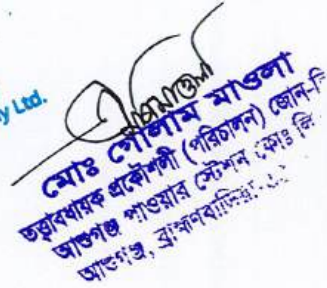 y Ltd.
মোঃ গোলাম মাওলা
তত্ত্বাবধায়ক প্রকৌশলী (পরিচালন) জোন-
আশুগঞ্জ পাওয়ার স্টেশন কোঃ লি
আশুগঞ্জ, ব্রাহ্মণবাড়িয়া-